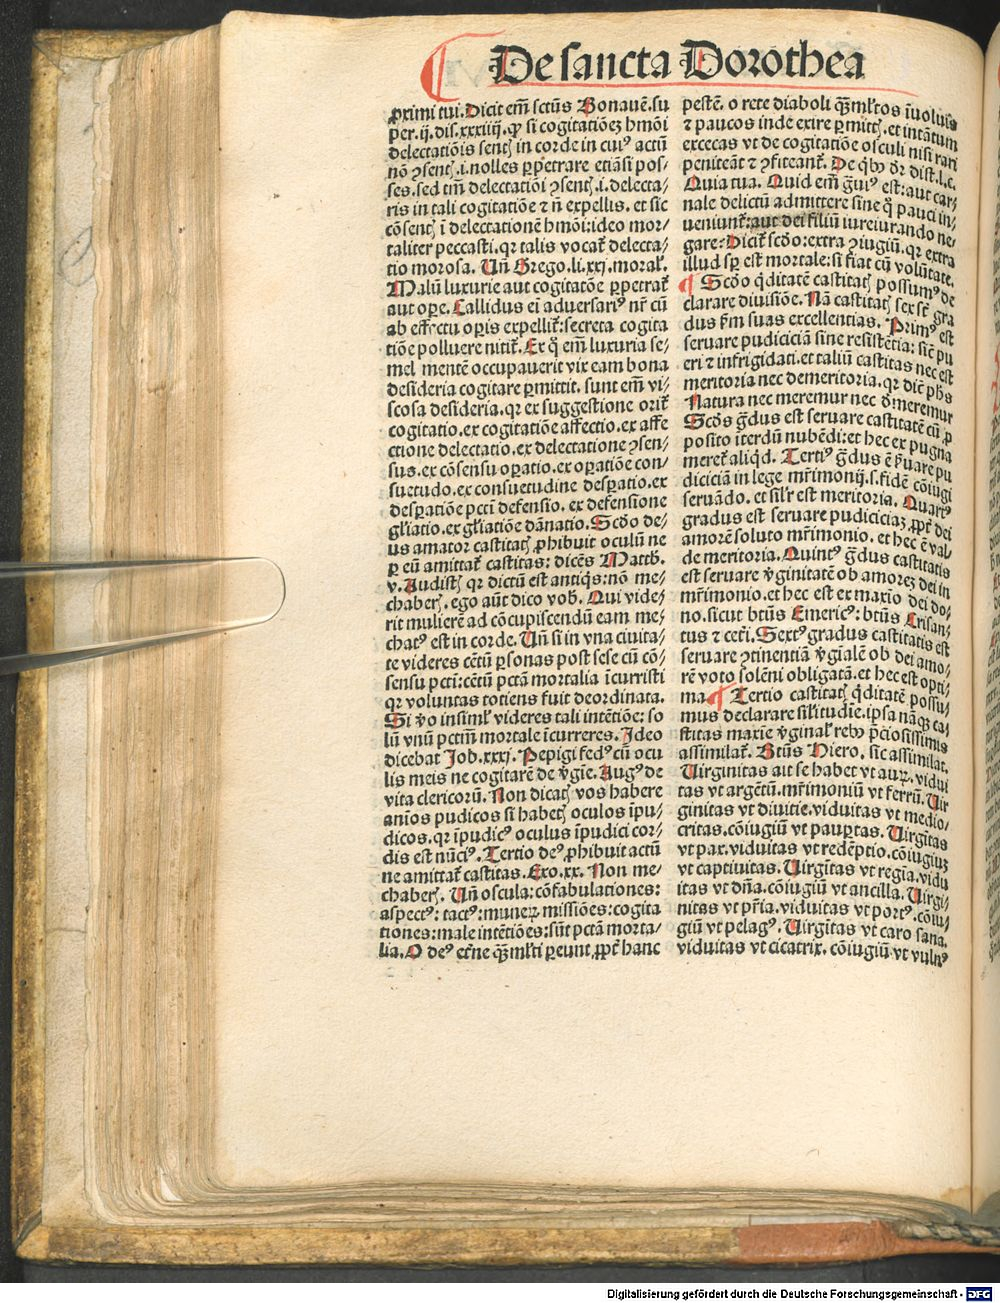 De sancta Dorothea
ꝓximi tui. Dicit em̄ sctūs Bonauē. su
per. ij. dis. xxxiiij. ꝙ si cogitatiōeȝ hmōi
delectatiōis sentꝭ in corde in cuiꝰ actū
nō ↄsentꝭ. i. nolles ꝑpetrare etiāsi pos⸗
ses. sed tm̄ delectatiōi ↄsentꝭ. i. delecta⸗
ris in tali cogitatiōe ⁊ n̄ expellis. et sic
cōsentꝭ ī delectationē hmōi: ideo mor⸗
taliter peccasti. qꝛ talis vocat᷑ delecta⸗
tio morosa. Un̄ Grego. li. xxj. moral᷑.
Malū luxurie aut cogitatōe ꝑpetrat᷑
aut oꝑe. Callidus ei aduersariꝰ nr̄ cū
ab effectu oꝑis expellit᷑: secreta cogita
tiōe polluere nitit᷑. Ex q̊ em̄ luxuria se⸗
mel mentē occupauerit vix eam bona
desideria cogitare ꝑmittit. sunt em̄ vi⸗
scosa desideria. qꝛ ex suggestione orit᷑
cogitatio. ex cogitatiōe affectio. ex affe
ctione delectatio. ex delectatione ↄsen⸗
sus. ex cōsensu oꝑatio. ex oꝑatiōe con⸗
suetudo. ex consuetudine desꝑatio. ex
desꝑatiōe pctī defensio. ex defensione
gl̄iatio. ex gl̄iatiōe dānatio. Scd̄o de⸗
us amator castitatꝭ ꝓhibuit oculū ne
ꝑ eū amittat᷑ castitas: dicēs Matth.
v. Audistꝭ qꝛ dictū est antiq̇s: nō me⸗
chaberꝭ. ego aūt dico vob̄. Qui vide⸗
rit mulierē ad cōcupiscendū eam me⸗
chatꝰ est in corde. Un̄ si in vna ciuita⸗
te videres cētū ꝑsonas post sese cū cō⸗
sensu pctī: cētū pctā mortalia īcurristi
qꝛ voluntas totiens fuit deordinata.
Si v̊o insiml᷑ videres tali intētiōe: so
lū vnū pctm̄ mortale īcurreres. Ideo
dicebat Job. xxxj. Pepigi fedꝰ cū ocu
lis meis ne cogitarē de v̊gīe. Augꝰ de
vita clericorū. Non dicatꝭ vos habere
anīos pudicos si habetꝭ oculos īpu⸗
dicos. qꝛ īpudicꝰ oculus īpudici cor⸗
dis est nūciꝰ. Tertio deꝰ ꝓhibuit actū
ne amittat᷑ castitas. Exo. xx. Non me⸗
chaberꝭ. Un̄ oscula: cōfabulationes:
aspectꝰ: tactꝰ: muneꝝ missiōes: cogita
tiones: male intētiōes: sūt pctā morta⸗
lia. O deꝰ et̄ne q̄ml᷑ti ꝑeunt ꝓpt̄ hanc
pestē. o rete diaboli q̄ml᷑tos īuoluis
⁊ paucos inde exire ꝑmittꝭ. et intātum
excecas vt de cogitatiōe osculi nisi rari
peniteāt ⁊ ↄfiteant᷑. De q̇bꝰ dr̄ dist. l. c.
Quia tua. Quid em̄ g̊uiꝰ est: aut car⸗
nale delictū admittere sine q̊ pauci in⸗
ueniunt᷑: aut dei filiū iureiurando ne⸗
gare. Dicit᷑ scd̄o: extra ↄiugiū. qꝛ extra
illud sꝑ est mortale: si fiat cū volūtate.
Scd̄o q̇ditatē castitatꝭ possumꝰ de
clarare diuisiōe. Nā castitatꝭ sex sūt gra
dus ẜm suas excellentias. Primꝰ est
seruare pudiciciā sine resistētia: sic̄ pu
eri ⁊ infrigidati. et taliū castitas nec est
meritoria nec demeritoria. qꝛ dic̄ ph̄s
Natura nec meremur nec d̓meremur
Scd̄s g̊dus est seruare castitatē cū ꝓ
posito iterdū nubēdi: et hec ex pugna
meret᷑ aliq̇d. Tertiꝰ g̊dus ē ẜuare pu
diciciā in lege mr̄imonij. s. fidē cōiugi
seruādo. et sil᷑r est meritoria. Quartꝰ
gradus est seruare pudiciciaȝ ꝓpt̄ dei
amorē soluto mr̄imonio. et hec ē val⸗
de meritoria. Quintꝰ g̊dus castitatis
est seruare v̊ginitatē ob amoreȝ dei in
mr̄imonio. et hec est ex maxīo dei do⸗
no. sicut btūs Emericꝰ: btūs Crisan⸗
tus ⁊ cet̄i. Sextꝰ gradus castitatis est
seruare ↄtinentiā v̊gīalē ob dei amo⸗
rē voto solēni obligatā. et hec est opti⸗
ma. Tertio castitatꝭ q̇ditatē possu⸗
mus declarare sil᷑itudīe. ipsa nāq̨ ca⸗
stitas maxīe v̊ginal᷑ rebꝰ p̄ciosissimis
assimilat᷑. Btūs Hiero. sic̄ assimilat.
Uirginitas ait se habet vt auꝝ. vidui
tas vt argētū. mr̄imoniū vt ferrū. Uir
ginitas vt diuitie. viduitas vt medio⸗
critas. cōiugiū vt pauꝑtas. Uirgītas
vt pax. viduitas vt redēptio. cōiugiuȝ
vt captiuitas. Uirgītas vt regia. vidu
itas vt dn̄a. cōiugiū vt ancilla. Uirgi⸗
nitas vt pr̄ia. viduitas vt portꝰ. cōiu⸗
giū vt pelagꝰ. Uirgītas vt caro sana.
viduitas vt cicatrix. cōiugiū vt vulnꝰ
Digitalisierung gefördert durch die Deutsche Forschungsgemeinschaft - DFG